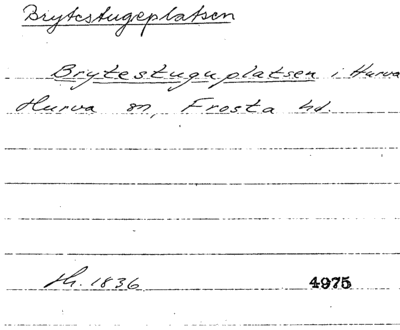 Brytestugeplatsen
Brytestuguplatsen i Hurva
Hurva sn, Frosta hd.
Jh. 1836 4975